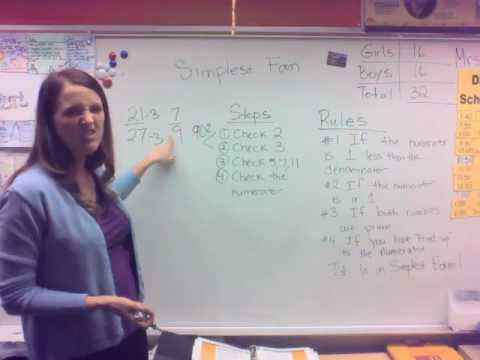 Simplest Form
21÷3 7
27÷3 9
Steps
① Check 2
② Check 3
③ Check 5,7,11
④ Check the
numerator
Rules
#1 If the numerator
is 1 less than the
denominator
#2 If the numerator
is a 1
#3 If both numbers
are prime
#4 If you have "tried up"
to the numerator
It is in Simplest Form!
Girls 16
Boys 16
Total 32
Mrs